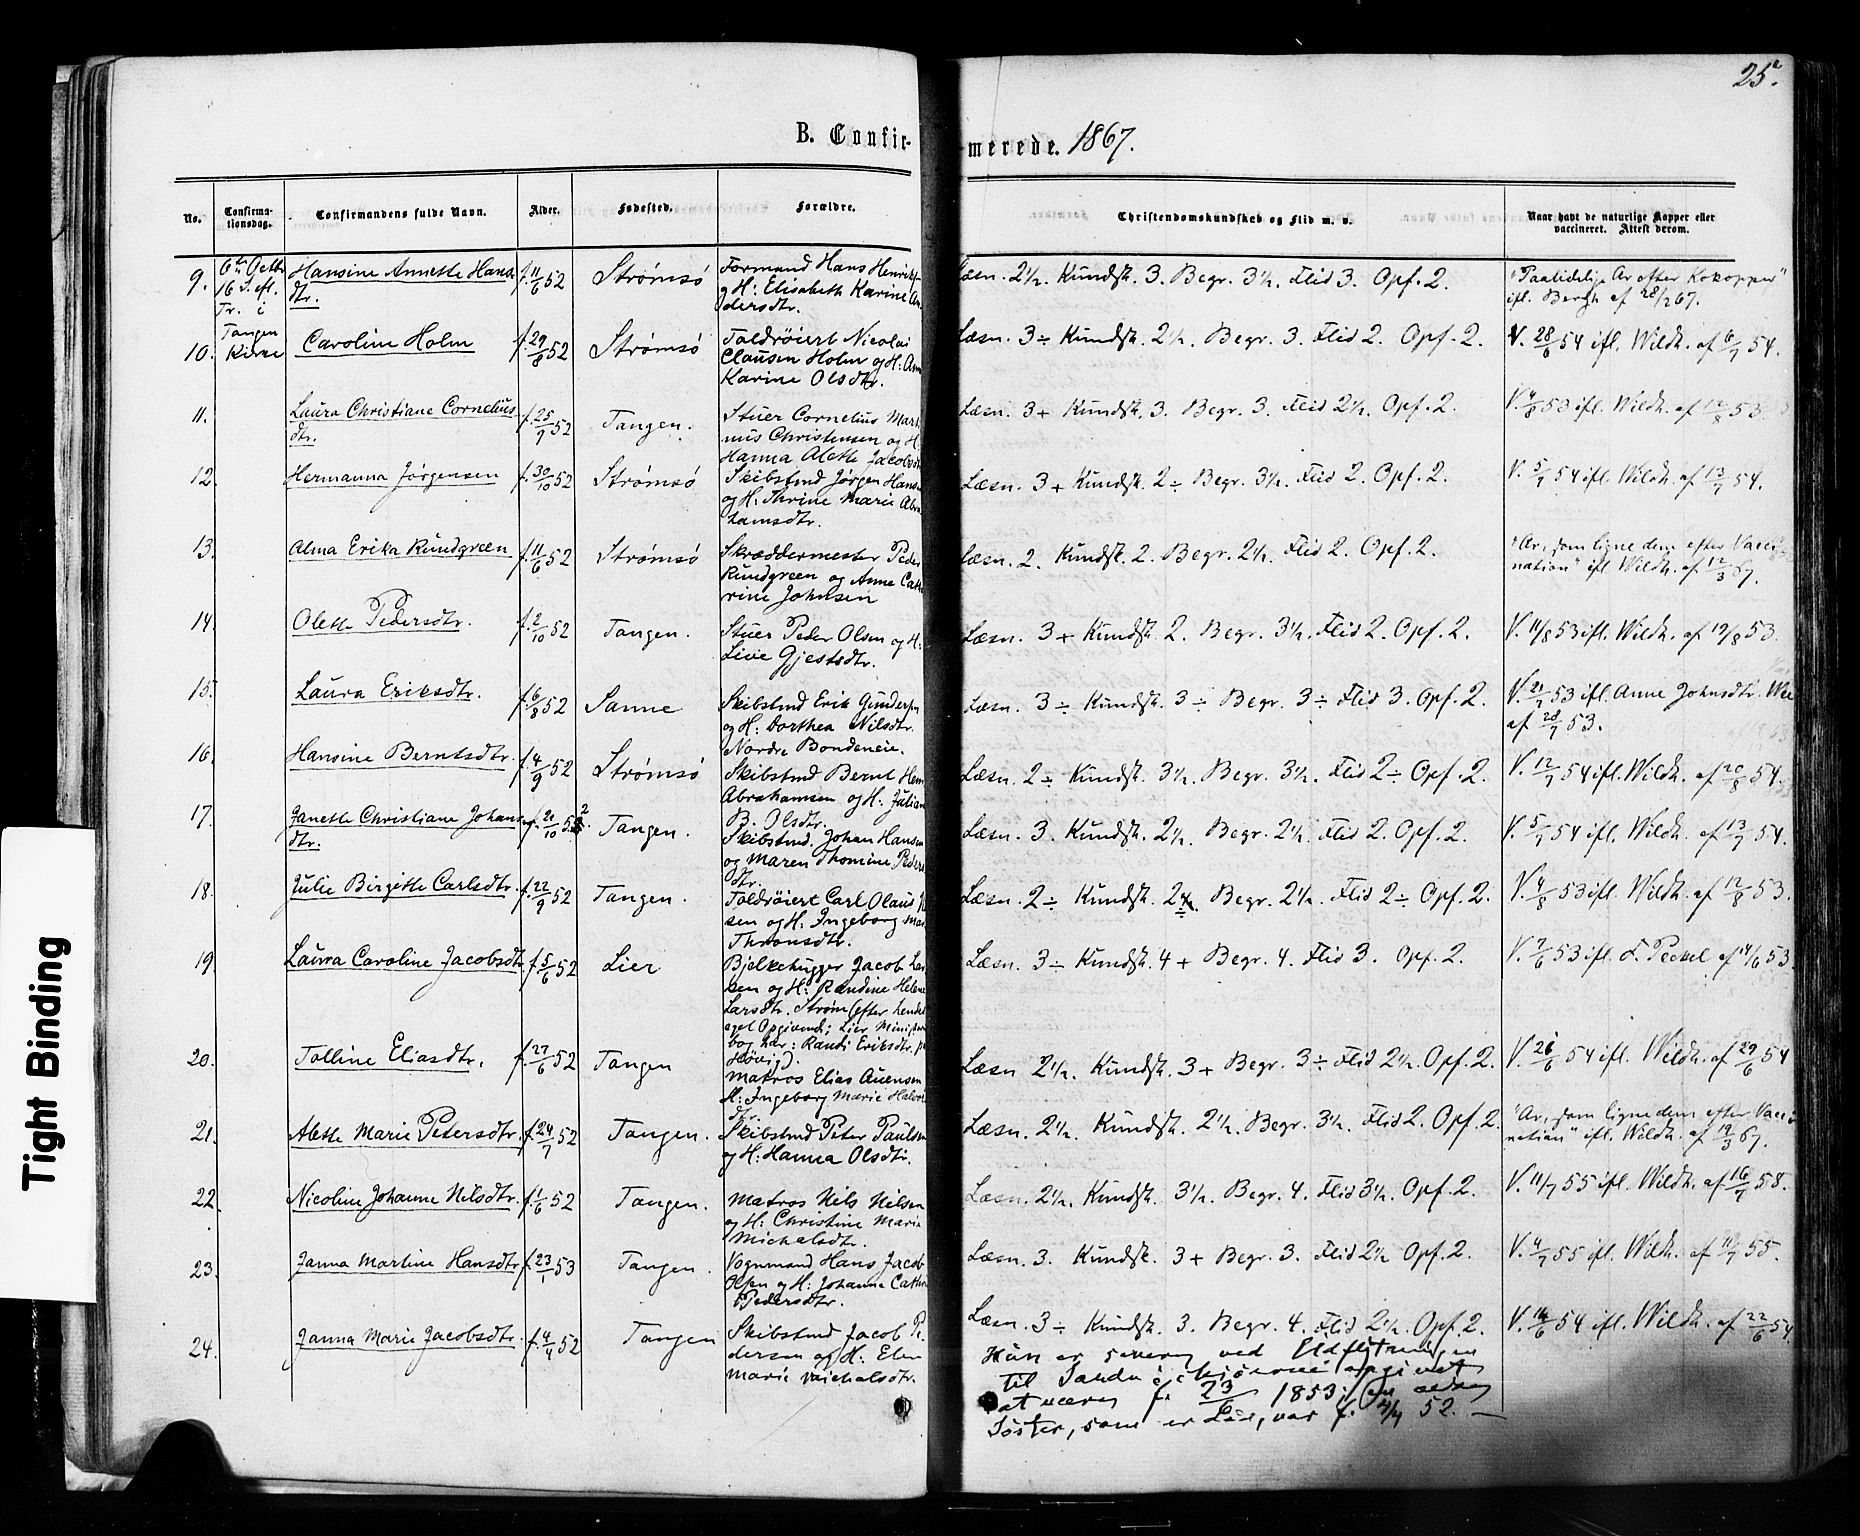 25.
B. Confir-
merede. 1867.
No.
Confirma-
tionsdag.
Confirmandens fulde Navn.
Alder.
Fødested.
Forældre.
Christendomskundskab og Flid m. v.
Naar havt de naturlige Kopper eller
vaccineret. Attest derom.
6te Octbr
16 S. eft.
Tr. i
Tangen
Kirke
9. Hansine Annette Hans-
dtr.
f. 11/6 52
Strømsø
Formand Hans Henriksen
og H: Elisabeth Karine An
dersdtr.
Læsn. 2 1/2. Kundsk. 3. Begr. 3 1/2. Flid 3. Opf. 2.
"Paalidelig Ar efter Kokopper"
ifl. Bergh af 28/2 67.
10. Caroline Holm
f. 29/8 52
Strømsø
Toldrøiert Nicolai
Clausen Holm og H: Ann
Karine Olsdtr.
Læsn. 3 ÷ Kundsk. 2 1/2. Begr. 3. Flid 2. Opf. 2.
V. 28/6 54 ifl. Wildh. af 6/7 54.
11. Laura Christiane Cornelius
dtr.
f. 25/7 52
Tangen.
Stuer Cornelius Mart
nius Christensen og H.
Hanna Alette Jacobsd
Læsn. 3 + Kundsk. 3. Begr. 3. Flid 2 1/2. Opf. 2.
V. 4/8 53 ifl. Wildh. af 12/8 53.
12. Hermanna Jørgensen
f. 30/10 52
Strømsø
Skibstmd Jørgen Hansen
og H. Thrine Marie Abra
hamsdtr.
Læsn. 3 + Kundsk. 2 ÷ Begr. 3 1/2. Flid 2. Opf. 2.
V. 5/7 54 ifl. Wildh. af 13/7 54.
13. Alma Erika Rundgreen
f. 11/6 52
Strømsø
Skræddermester Peder
Rundgreen og Anne Cath
rine Johnsen
Læsn. 2. Kundsk. 2. Begr. 2 1/2. Flid 2. Opf. 2.
"Ar, som ligne dem efter Vacci-
nation" ifl. Wildh. af 12/3 67.
14. Olette Pedersdtr.
f. 2/10 52
Tangen.
Stuer Peder Olsen og H:
Live Gjestsdtr.
Læsn. 3 + Kundsk. 2. Begr. 3 1/2. Flid 2. Opf. 2.
V. 11/8 53 ifl. Wildh. af 19/8 53.
15. Laura Eriksdtr.
f. 6/8 52
Sanne
Skibstmd Erik Gundersen
og H: Dorthea Nilsdtr.
Nordre Bondeneie.
Læsn. 3 ÷ Kundsk. 3 ÷ Begr. 3 ÷ Flid 3. Opf. 2.
V. 21/7 53 ifl. Anne Johnsdtr. Wee
af 28/7 53.
16. Hansine Berntsdtr.
f. 4/9 52
Strømsø
Skibstmd Bernt Hem
Abrahamsen og H: Julian
B. Olsdtr.
Læsn. 2 ÷ Kundsk. 3 1/2. Begr. 3 1/2. Flid 2 ÷ Opf. 2.
V. 12/7 54 ifl. Wildh. af 20/8 54.
17. Janette Christiane Johans
dtr.
f. 21/10 52
Tangen.
Skibstmd. Johan Hansen
og Maren Thomine Peders
dtr.
Læsn. 3. Kundsk. 2 1/2. Begr. 2 1/2. Flid 2. Opf. 2.
V. 5/7 54 ifl. Wildh. af 13/7 54.
18. Julie Birgitte Carlsdtr.
f. 22/9 52
Tangen.
Toldrøiert Carl Olaus
sen og H: Ingeborg Mar
Thronsdtr.
Læsn. 2 ÷ Kundsk. 2 ÷ Begr. 2 1/2. Flid 2 ÷. Opf. 2.
V. 4/8 53 ifl. Wildh. af 12/8 53.
19. Laura Caroline Jacobsdtr
f. 5/6 52
Lier
Bjelkehugger Jacob Lar
sen og H: Randine Helene
Larsdtr. Strøm (efter hendes
eget Opgivende; Lier Minister
bog har: Randi Eriksdtr. p
Høvig).
Læsn. 3 ÷ Kundsk. 4 + Begr. 4. Flid 3. Opf. 2.
V. 7/6 53 ifl. F. Peckel af 14/6 53.
20. Tolline Eliasdtr.
f. 27/6 52
Tangen
Matros Elias Auensen
H: Ingeborg Marie Halvor
dtr.
Læsn 2 1/2. Kundsk. 3 + Begr. 3 ÷ Flid 2 1/2. Opf. 2.
V. 26/6 54 ifl. Wildh. af 29/6 54
21. Alette Marie Petersdtr.
f. 24/7 52
Tangen.
Skibstmd Peter Paulsen
og H: Hanna Olsdtr.
Læsn. 2 1/2. Kundsk. 2 1/2. Begr. 3 1/2. Flid 2. Opf. 2.
"Ar, som ligne dem efter Vacci-
nation" ifl. Wildh. af 19/3 67.
22. Nicoline Johanne Nilsdtr.
f. 1/6 52
Tangen.
Matros Nils Nilsen
og H: Christine Marie
Michalsdtr.
Læsn. 2 1/2. Kundsk. 3 1/2. Begr. 4. Flid 3 1/2. Opf. 2.
V. 11/7 55 ifl. Wildh. af 16/7 58.
23. Janna Martine Hansdtr.
f. 23/1 53
Tangen.
Vognmand Hans Jacob
Olsen og H: Johanne Cathr
Pedersdtr.
Læsn. 3. Kundsk. 3 + Begr. 3. Flid 2 1/2 Opf. 2.
V. 4/7 55 ifl. Wildh. af 10/7 55.
24. Janna Marie Jacobsdtr.
f. 4/4 52
Tangen
Skibstmd Jacob Pe
dersen og H: Elen
Marie Michalsdtr.
Læsn. 3 ÷ Kundsk. 3. Begr. 4. Flid 2 1/2. Opf. 2.
V. 14/6 54 ifl. Wildh. af 22/6 54
Hun er senere ved Udflytningen
til Sande opgivet
at være f. 23/ 1853; en ældre
Søster, som er død, var f. 4/4 52. —
Tight Binding